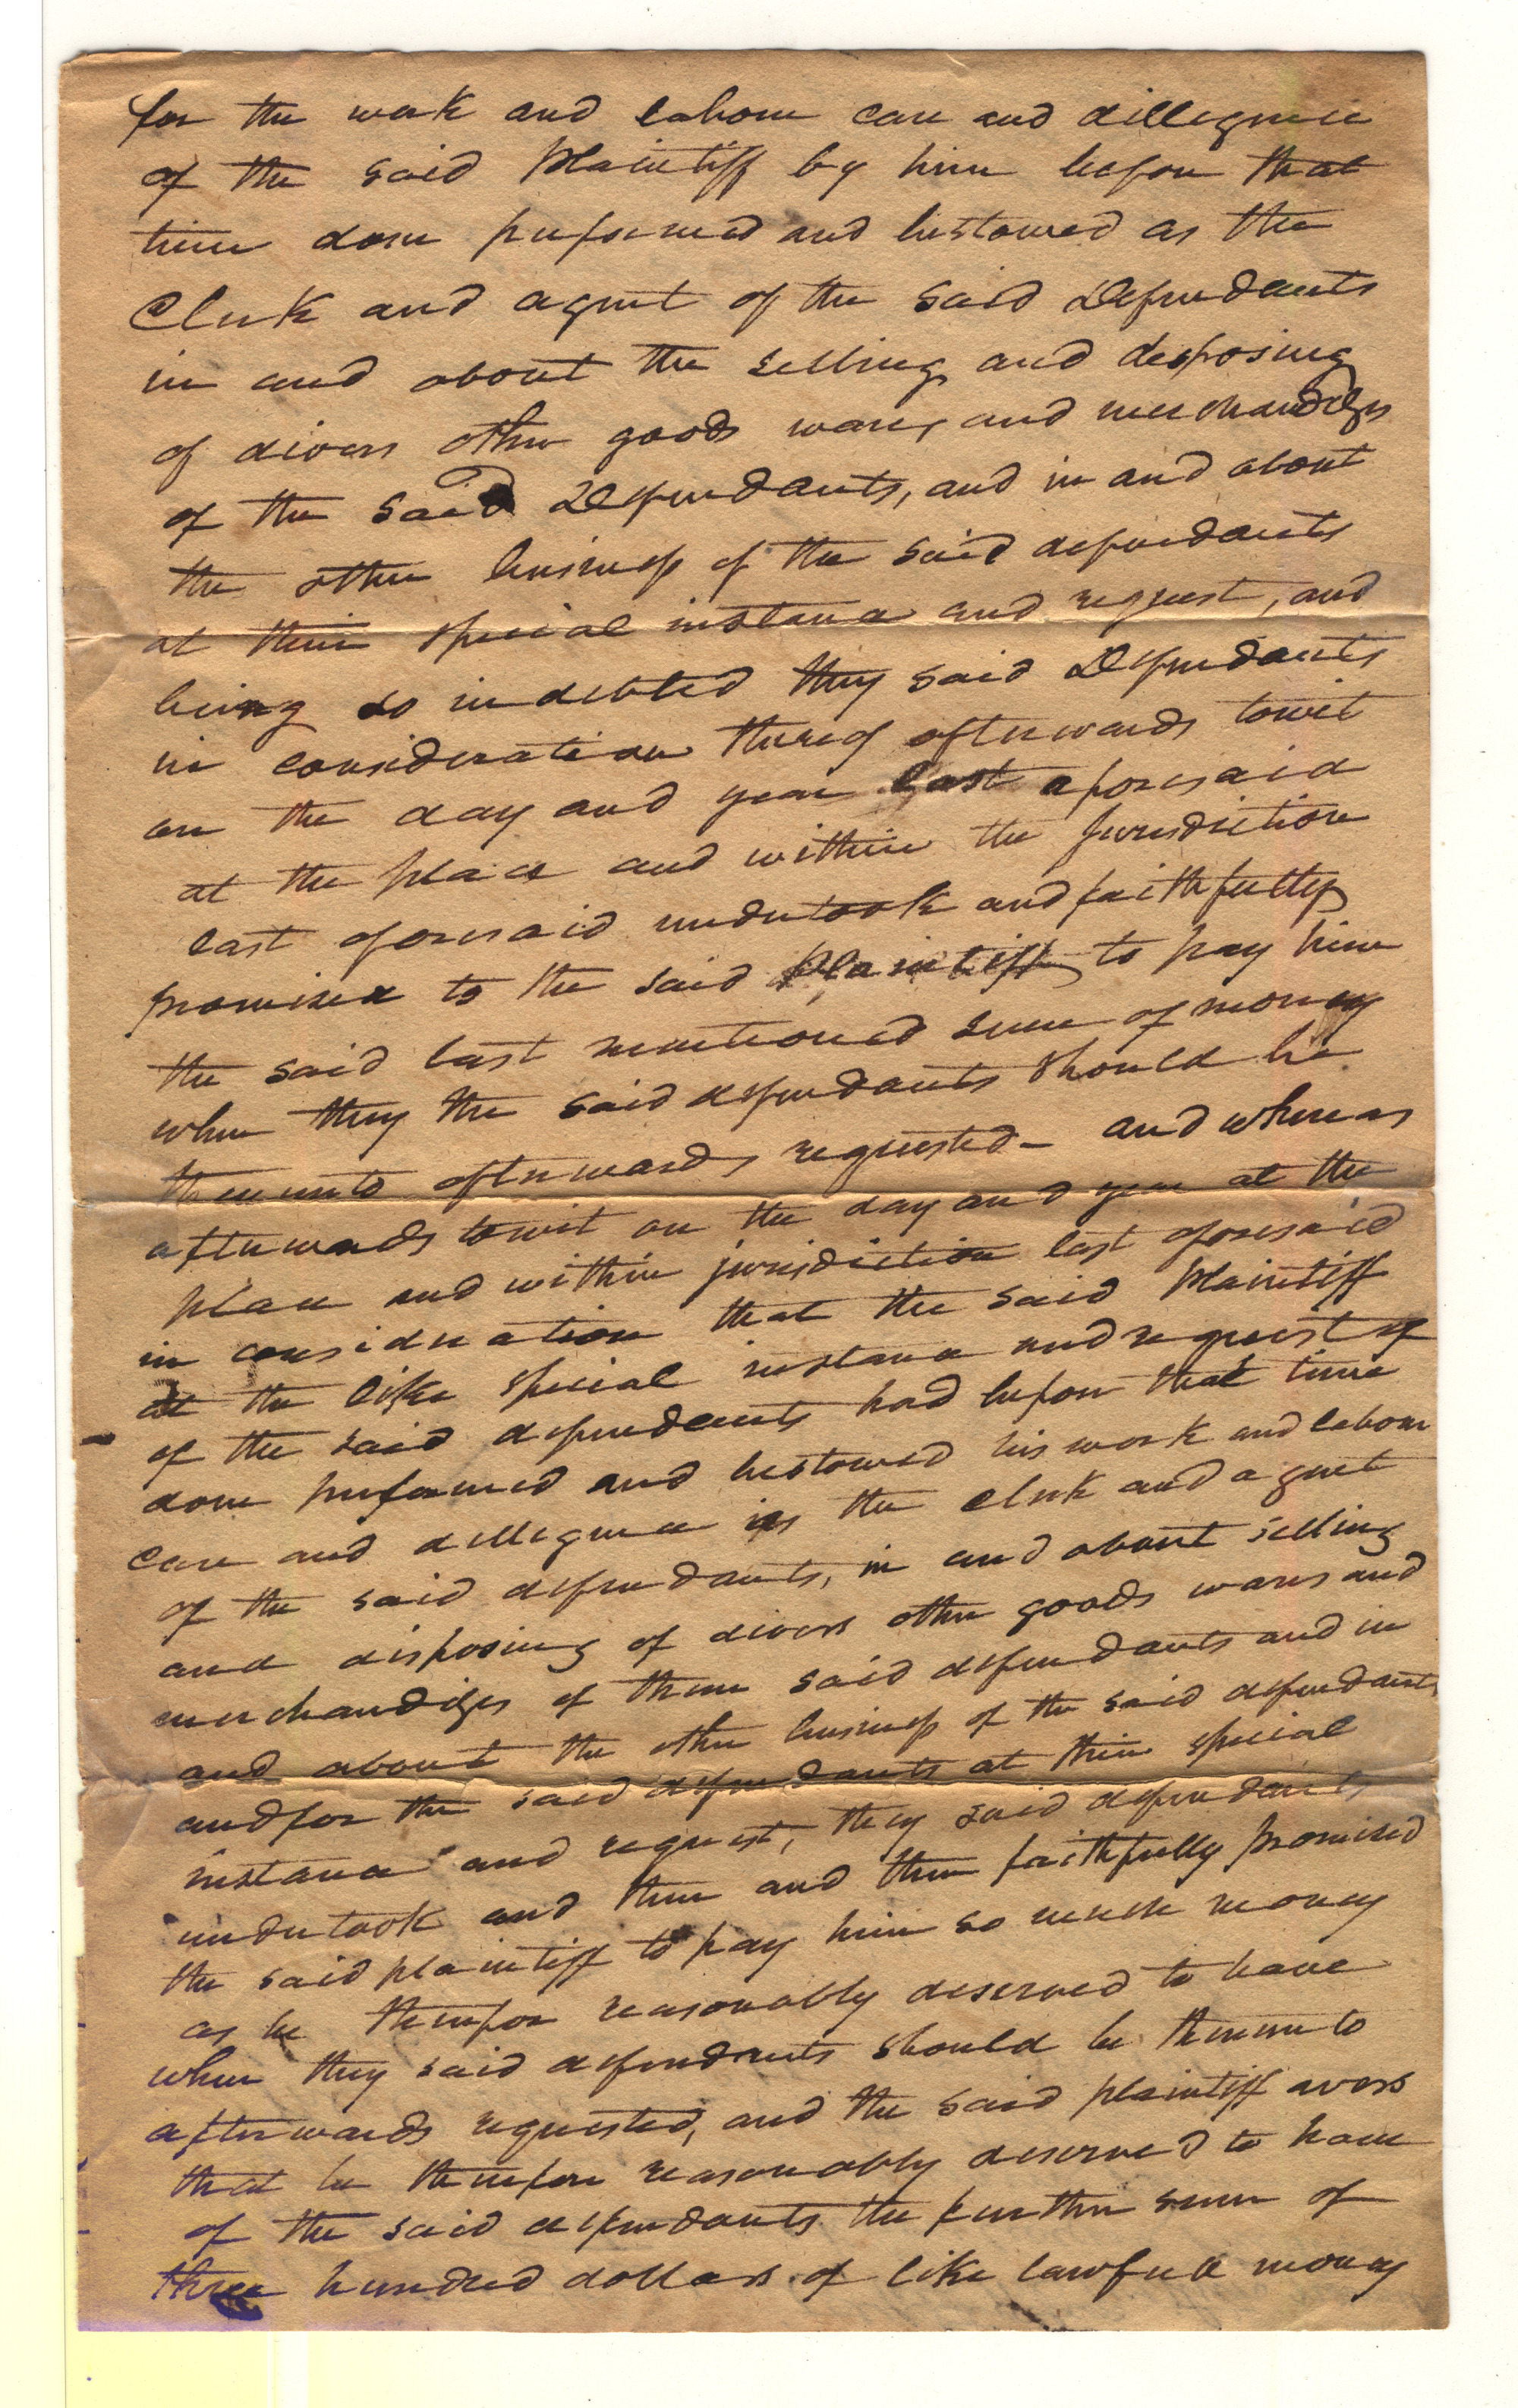 for the work and labour care and dillegence
of the said Plaintiff by him before that
time done performed and bestowed as the
Clerk and agent of the said Defendants
in and about the selling and desposing
of divers other goods wares and merchandizes
of the said Defendants, and in and about
the other business of the said defendants
at their special instance and request, and
being so indebted they said Defendants
in consideration thereof afterwards towit
on the day and year last aforesaid
at the place and within the Jurisdiction
last aforesaid undertook and faithfully
promised to the said Plaintiff to pay him
the said last mentioned sum of money
when they the said defendants should be
thereunto afterwards requested - and whereas
afterwards towit on the day and year at the
place and within jurisdiction last aforesaid
in consideration that the said Plaintiff
at the like special instance and request of
of the said defendants had before that time
done performed and bestowed his work and labour
care and dillegence as the clerk and agent
of the said defendants, in and about selling
and disposing of divers other goods wares and
merchandizes of them said defendants and in
and about the other business of the said defendants
and for the said defendants at their special
instance and request, they said defendants
undertook and then and there faithfully promised
the said plaintiff to pay him so much money
as he therefor reasonably deserved to have
when they said defendants should be thereunto
afterwards requested, and the said plaintiff avers
that he therefore reasonably deserved to have
of the said defendants the further sum of
three hundred dollars of like lawfull money